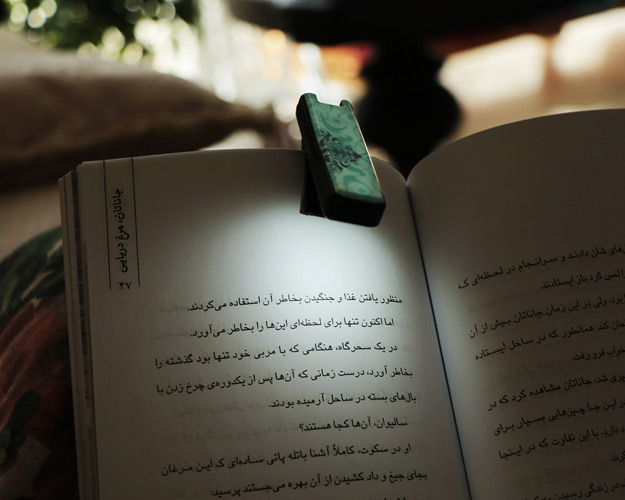 های شان دادند و سرانجام در لحظه‌ای که
لمس کرد باز ایستادند.
بود ولی در این زمان جاناتان بیش از آن
کند همانطور که در ساحل ایستاده
خواب فرو رفت.
شد، جاناتان مشاهده کرد که در
این جا چیزهایی بسیار برای
دارد، با این تفاوت که در اینجا
در زندگی
جاناتان، مرغ دریایی
۴۷
منظور یافتن غذا و جنگیدن بخاطر آن استفاده می‌کردند.
اما اکنون تنها برای لحظه‌ای این‌ها را بخاطر می‌آورد.
در یک سحرگاه، هنگامی که با مربی خود تنها بود گذشته را
بخاطر آورد، درست زمانی که آن‌ها پس از یکدوره‌ی چرخ زدن با
بال‌های بسته در ساحل آرمیده بودند.
سالیوان، آن‌ها کجا هستند؟
او در سکوت، کاملاً آشنا باتله پاتی ساده‌ای که این مرغان
بجای جیغ و داد کشیدن از آن بهره می‌جستند پرسید: